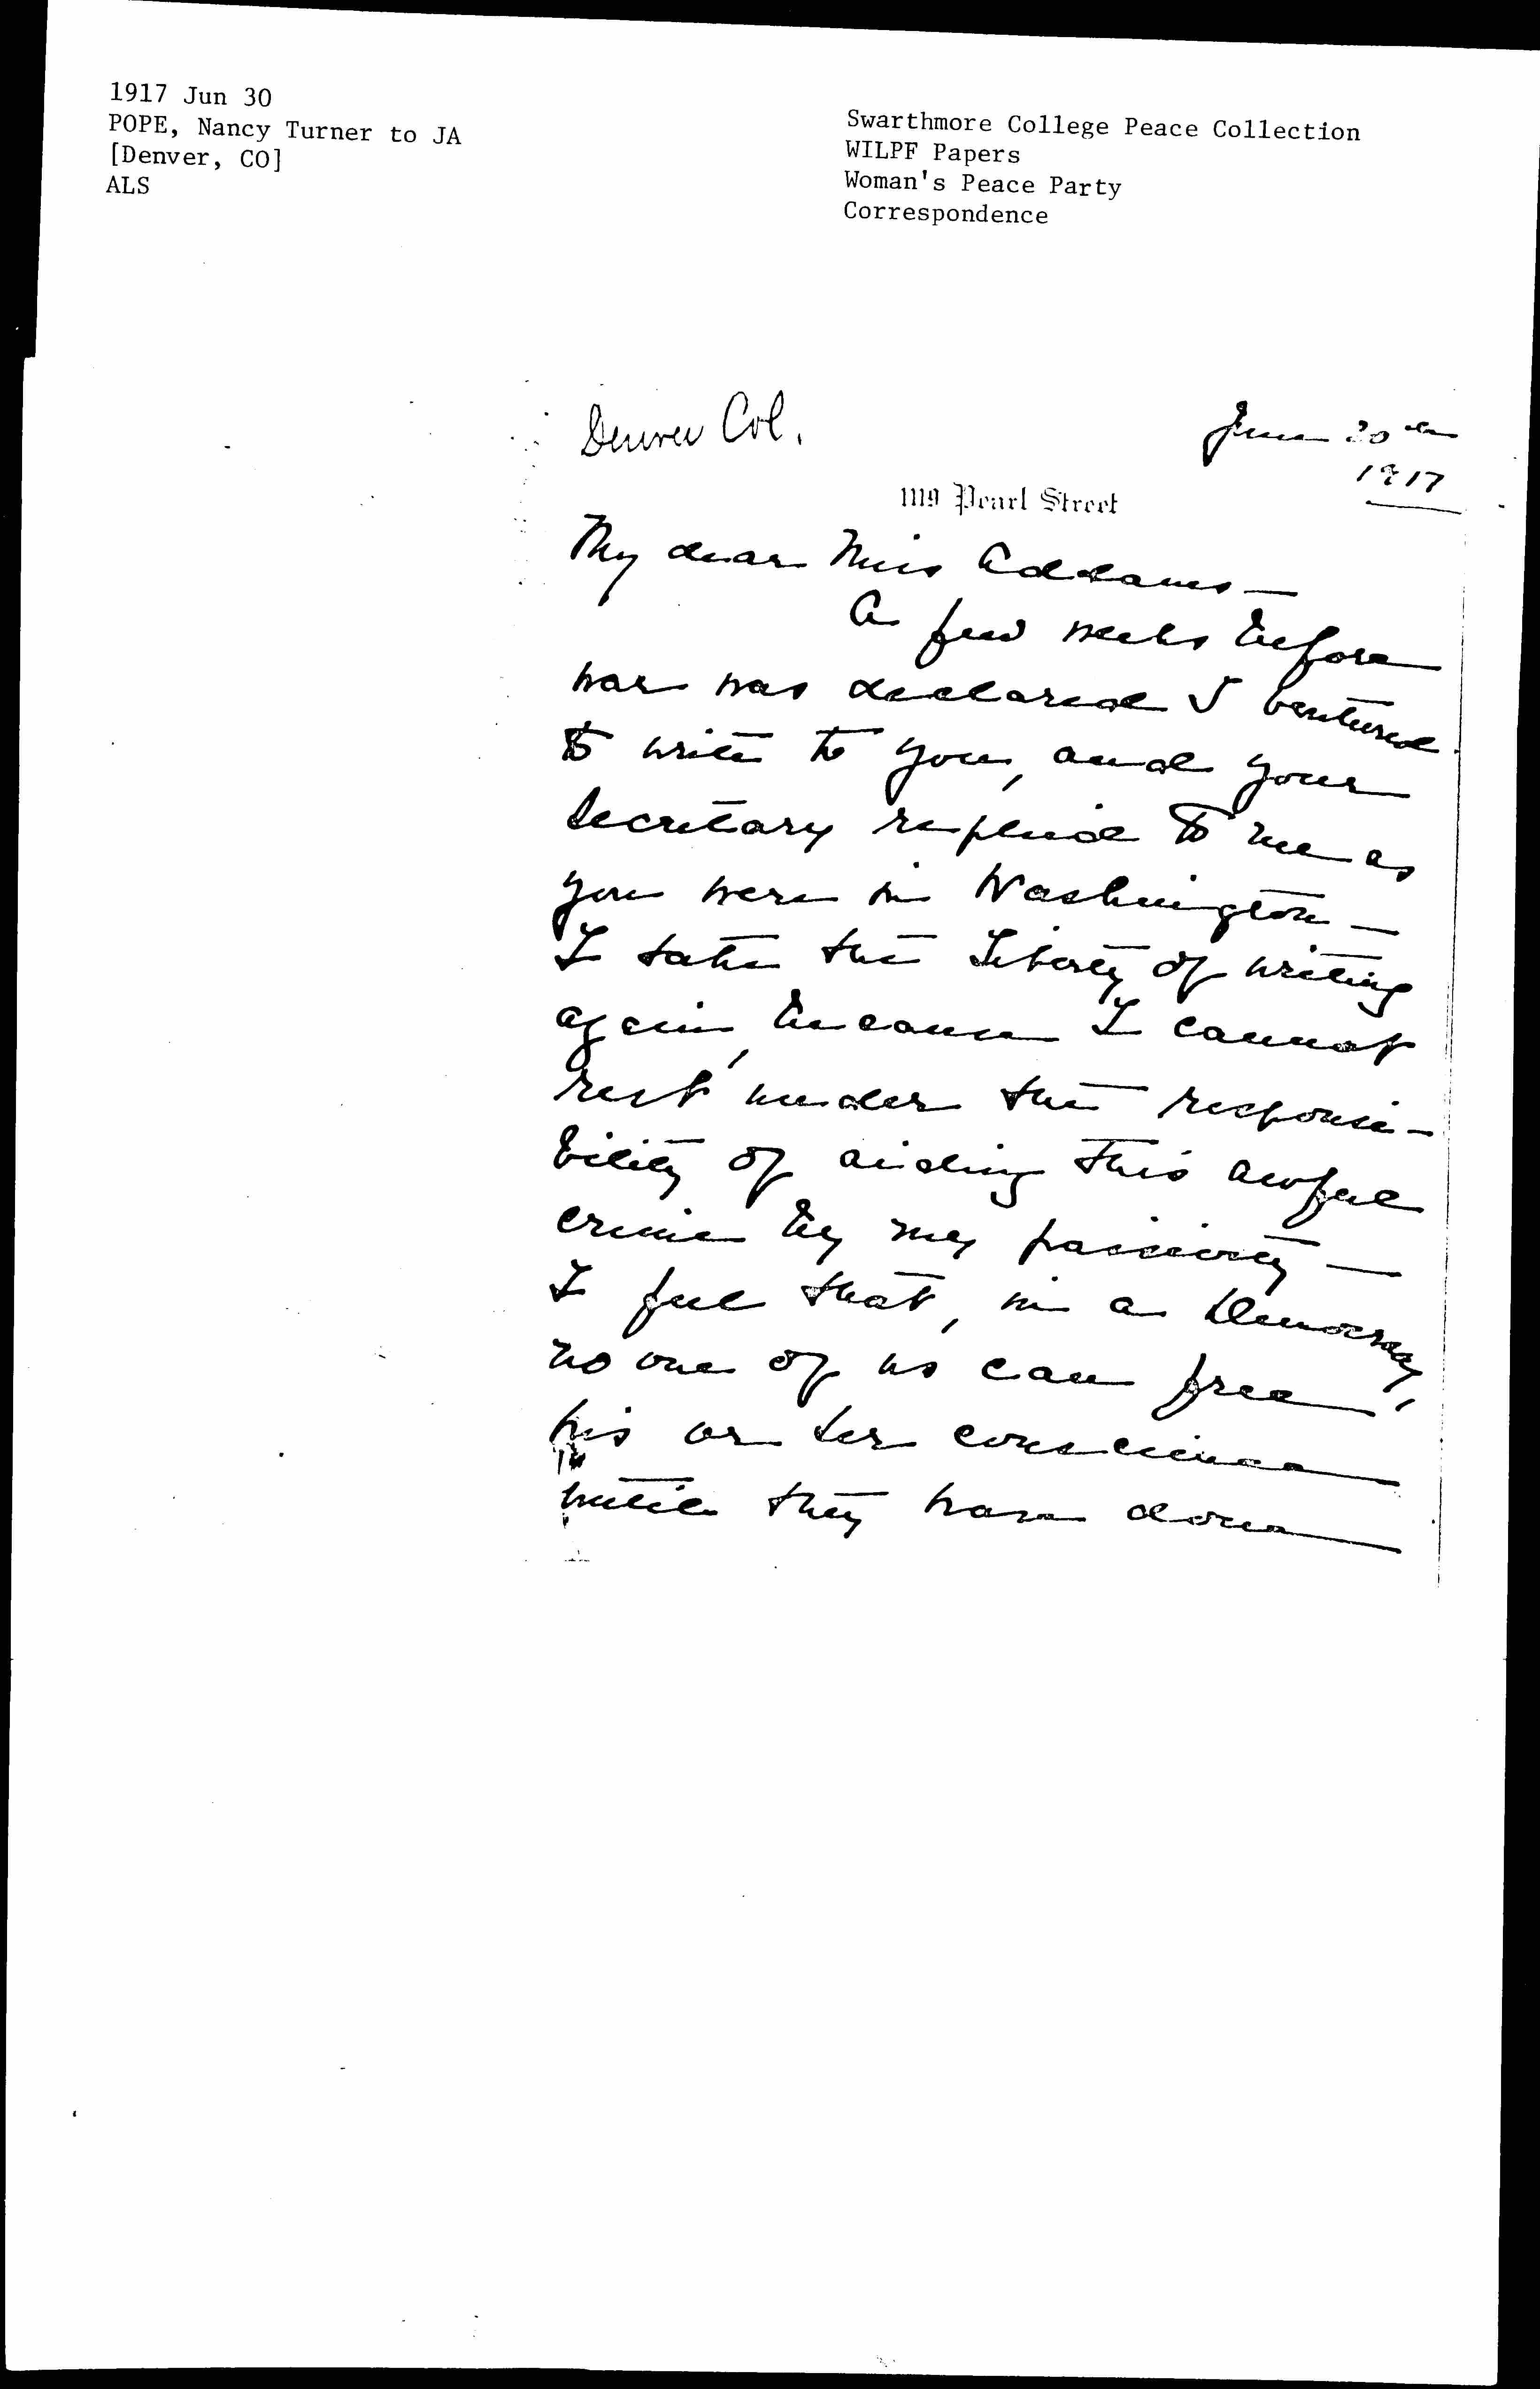 1917 Jun 30
POPE, Nancy Turner to JA
[Denver, CO]
ALS
Swarthmore College Peace Collection
WILPF Papers
Woman's Peace Party
Correspondence
Denver Col.
June 30th
1917
1119 Pearl Street
My dear Miss Addams —
A few weeks before
war was declared I ventured
to write to you, and your
secretary replied to me as
you were in Washington —
I take the liberty of writing
again, because I cannot
rest under the responsi-
bility of aiding this awful
crime by my passivity —
I feel that, in a Democracy,
no one of us can free
his or her conscience
until they have done